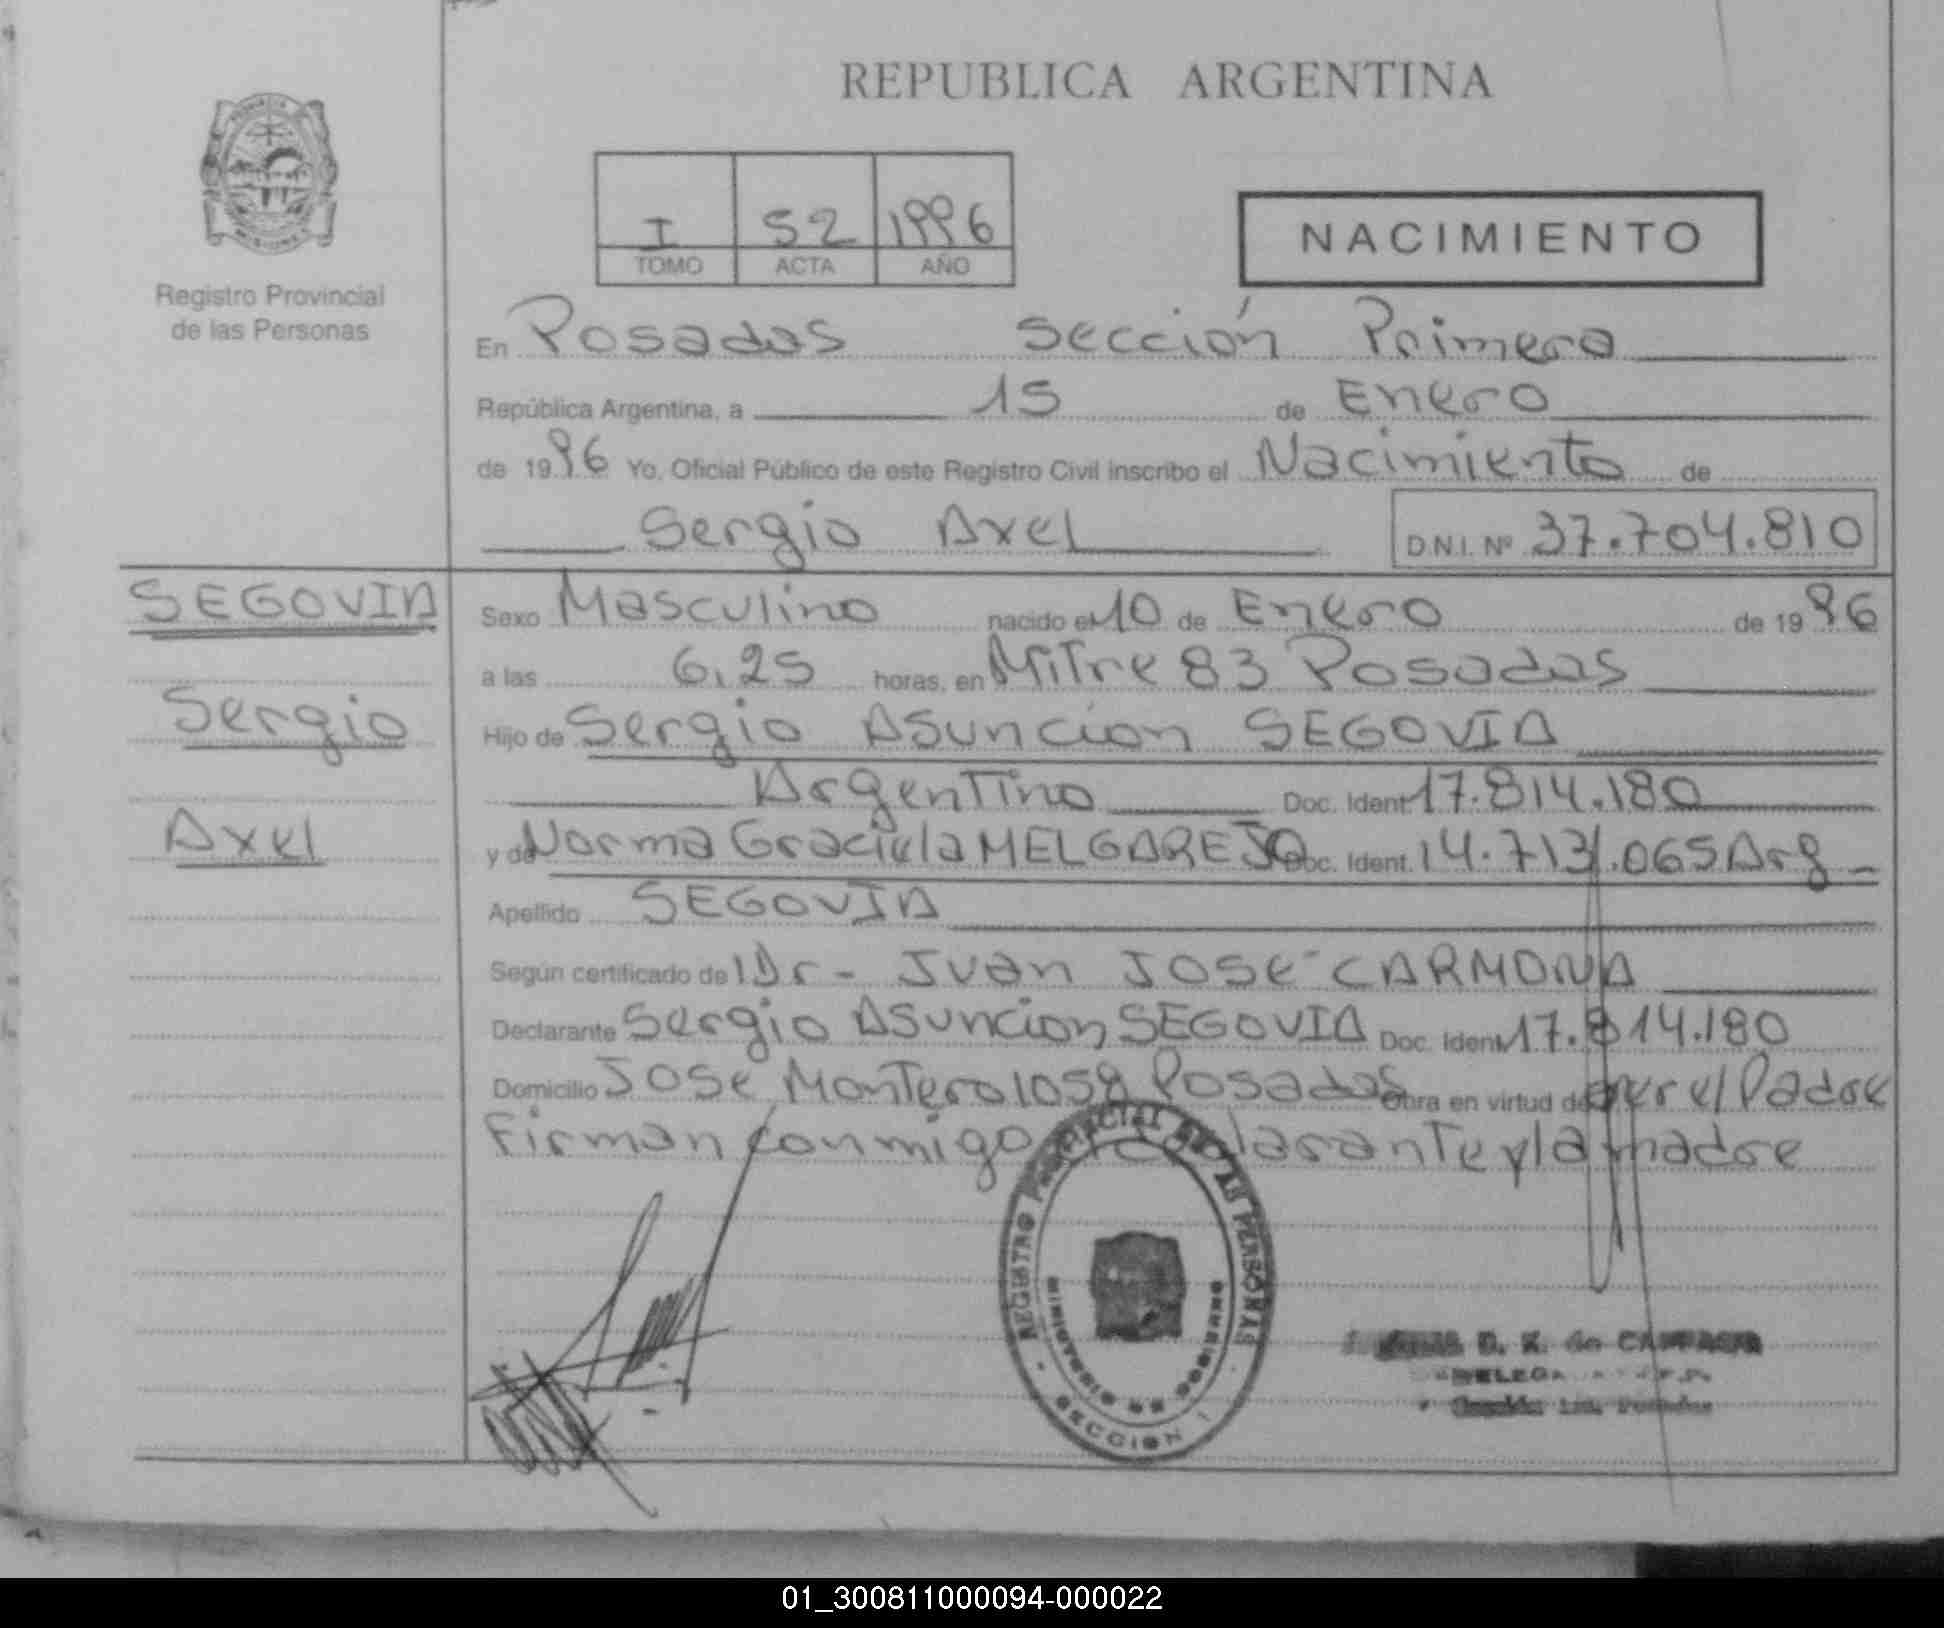 REPUBLICA ARGENTINA
I 52 1996
TOMO ACTA AÑO
NACIMIENTO
Registro Provincial
de las Personas
En Posadas Sección Primera
República Argentina, a 15 de Enero
de 1996 Yo, Oficial Público de este Registro Civil inscribo el Nacimiento de
Sergio Axel D.N.I. Nº 37.704.810
SEGOVIA
Sergio
Axel
Sexo Masculino nacido el 10 de Enero de 1996
a las 6,25 horas, en Mitre 83 Posadas
Hijo de Sergio Asunción SEGOVIA
Argentino Doc. Ident. 17.814.180
y de Norma Graciela MELGAREJO Doc. Ident. 14.713.065 Arg
Apellido SEGOVIA
Según certificado de l Dr- Juan José CARMONA
Declarante Sergio Asunción SEGOVIA Doc. Ident. 17.814.180
Domicilio José Montero 1059 Posadas Obra en virtud de ser el Padre
Firman conmigo laranteylamadre
REGISTRO PROVINCIAL DE LAS PERSONAS
MINISTERIO DE GOBIERNO
SECCION 1
D. K. de
Sección 1ra. Posadas
01_300811000094-000022